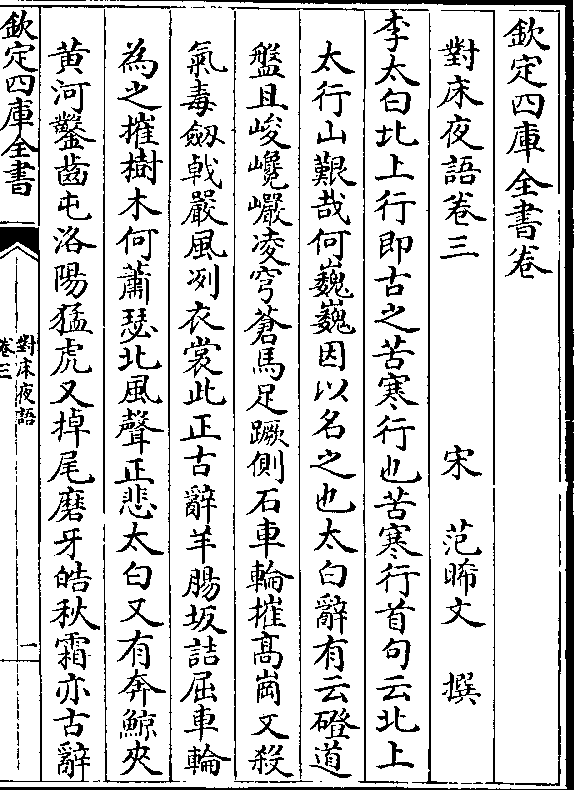 欽定四庫全書卷
對牀夜語卷三
宋 范晞文 撰
李太白北上行即古之苦寒行也苦寒行首句云北上
太行山艱哉何巍巍因以名之也太白辭有云磴道
盤且峻巉巖凌穹蒼馬足蹶側石車輪摧髙崗又殺
氣毒劔戟嚴風冽衣裳此正古辭羊腸坂詰屈車輪
為之摧樹木何蕭瑟北風聲正悲太白又有奔鯨夾
黄河鑿齒屯洛陽猛虎又掉尾磨牙皓秋霜亦古辭
欽定四庫全書
對牀夜語
卷三
一